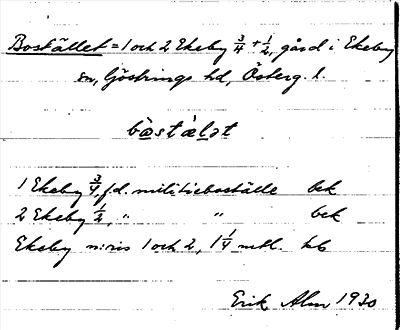 Bostället = 1 och 2 Ekeby 3/4 + 1/2, gård i Ekeby
sn, Göstrings hd, Österg. l.
bòstälət
1 Ekeby 3/4, f.d. militieboställe bek
2 Ekeby 1/2, " " bek
Ekeby n:ris 1 och 2, 1 1/4 mtl. Jb
Erik Alm 1930